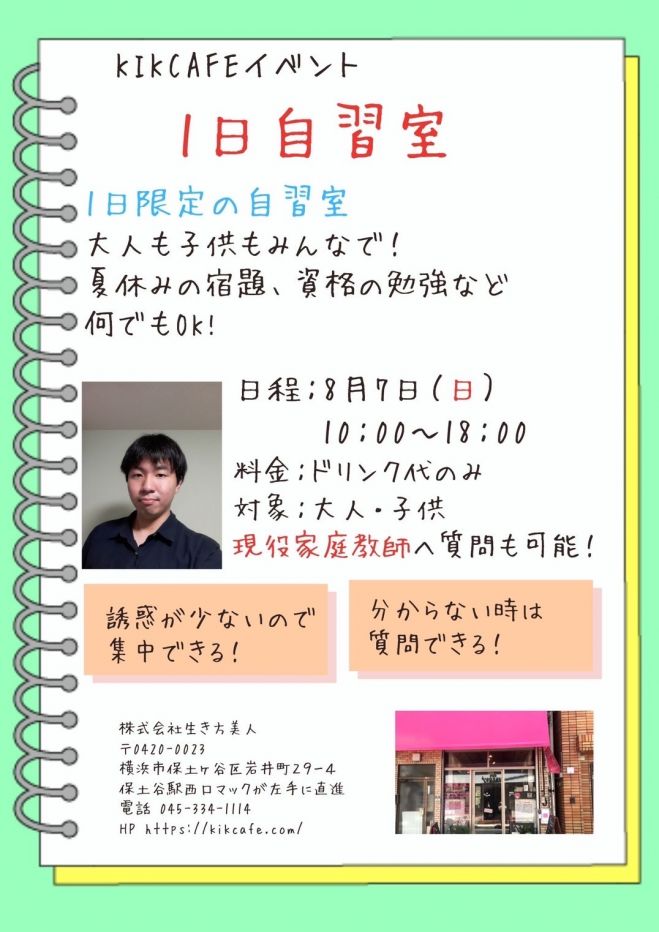 KIKCAFEイベント
1日自習室
1日限定の自習室
大人も子供もみんなで!
夏休みの宿題、資格の勉強など
何でもOK!
日程;8月7日(日)
10:00～18:00
料金;ドリンク代のみ
対象;大人・子供
現役家庭教師へ質問も可能!
誘惑が少ないので
集中できる!
分からない時は
質問できる!
株式会社生き方美人
〒0420-0023
横浜市保土ヶ谷区岩井町29-4
保土谷駅西口マックが左手に直進
電話 045-334-1114
HP https://kikcafe.com/